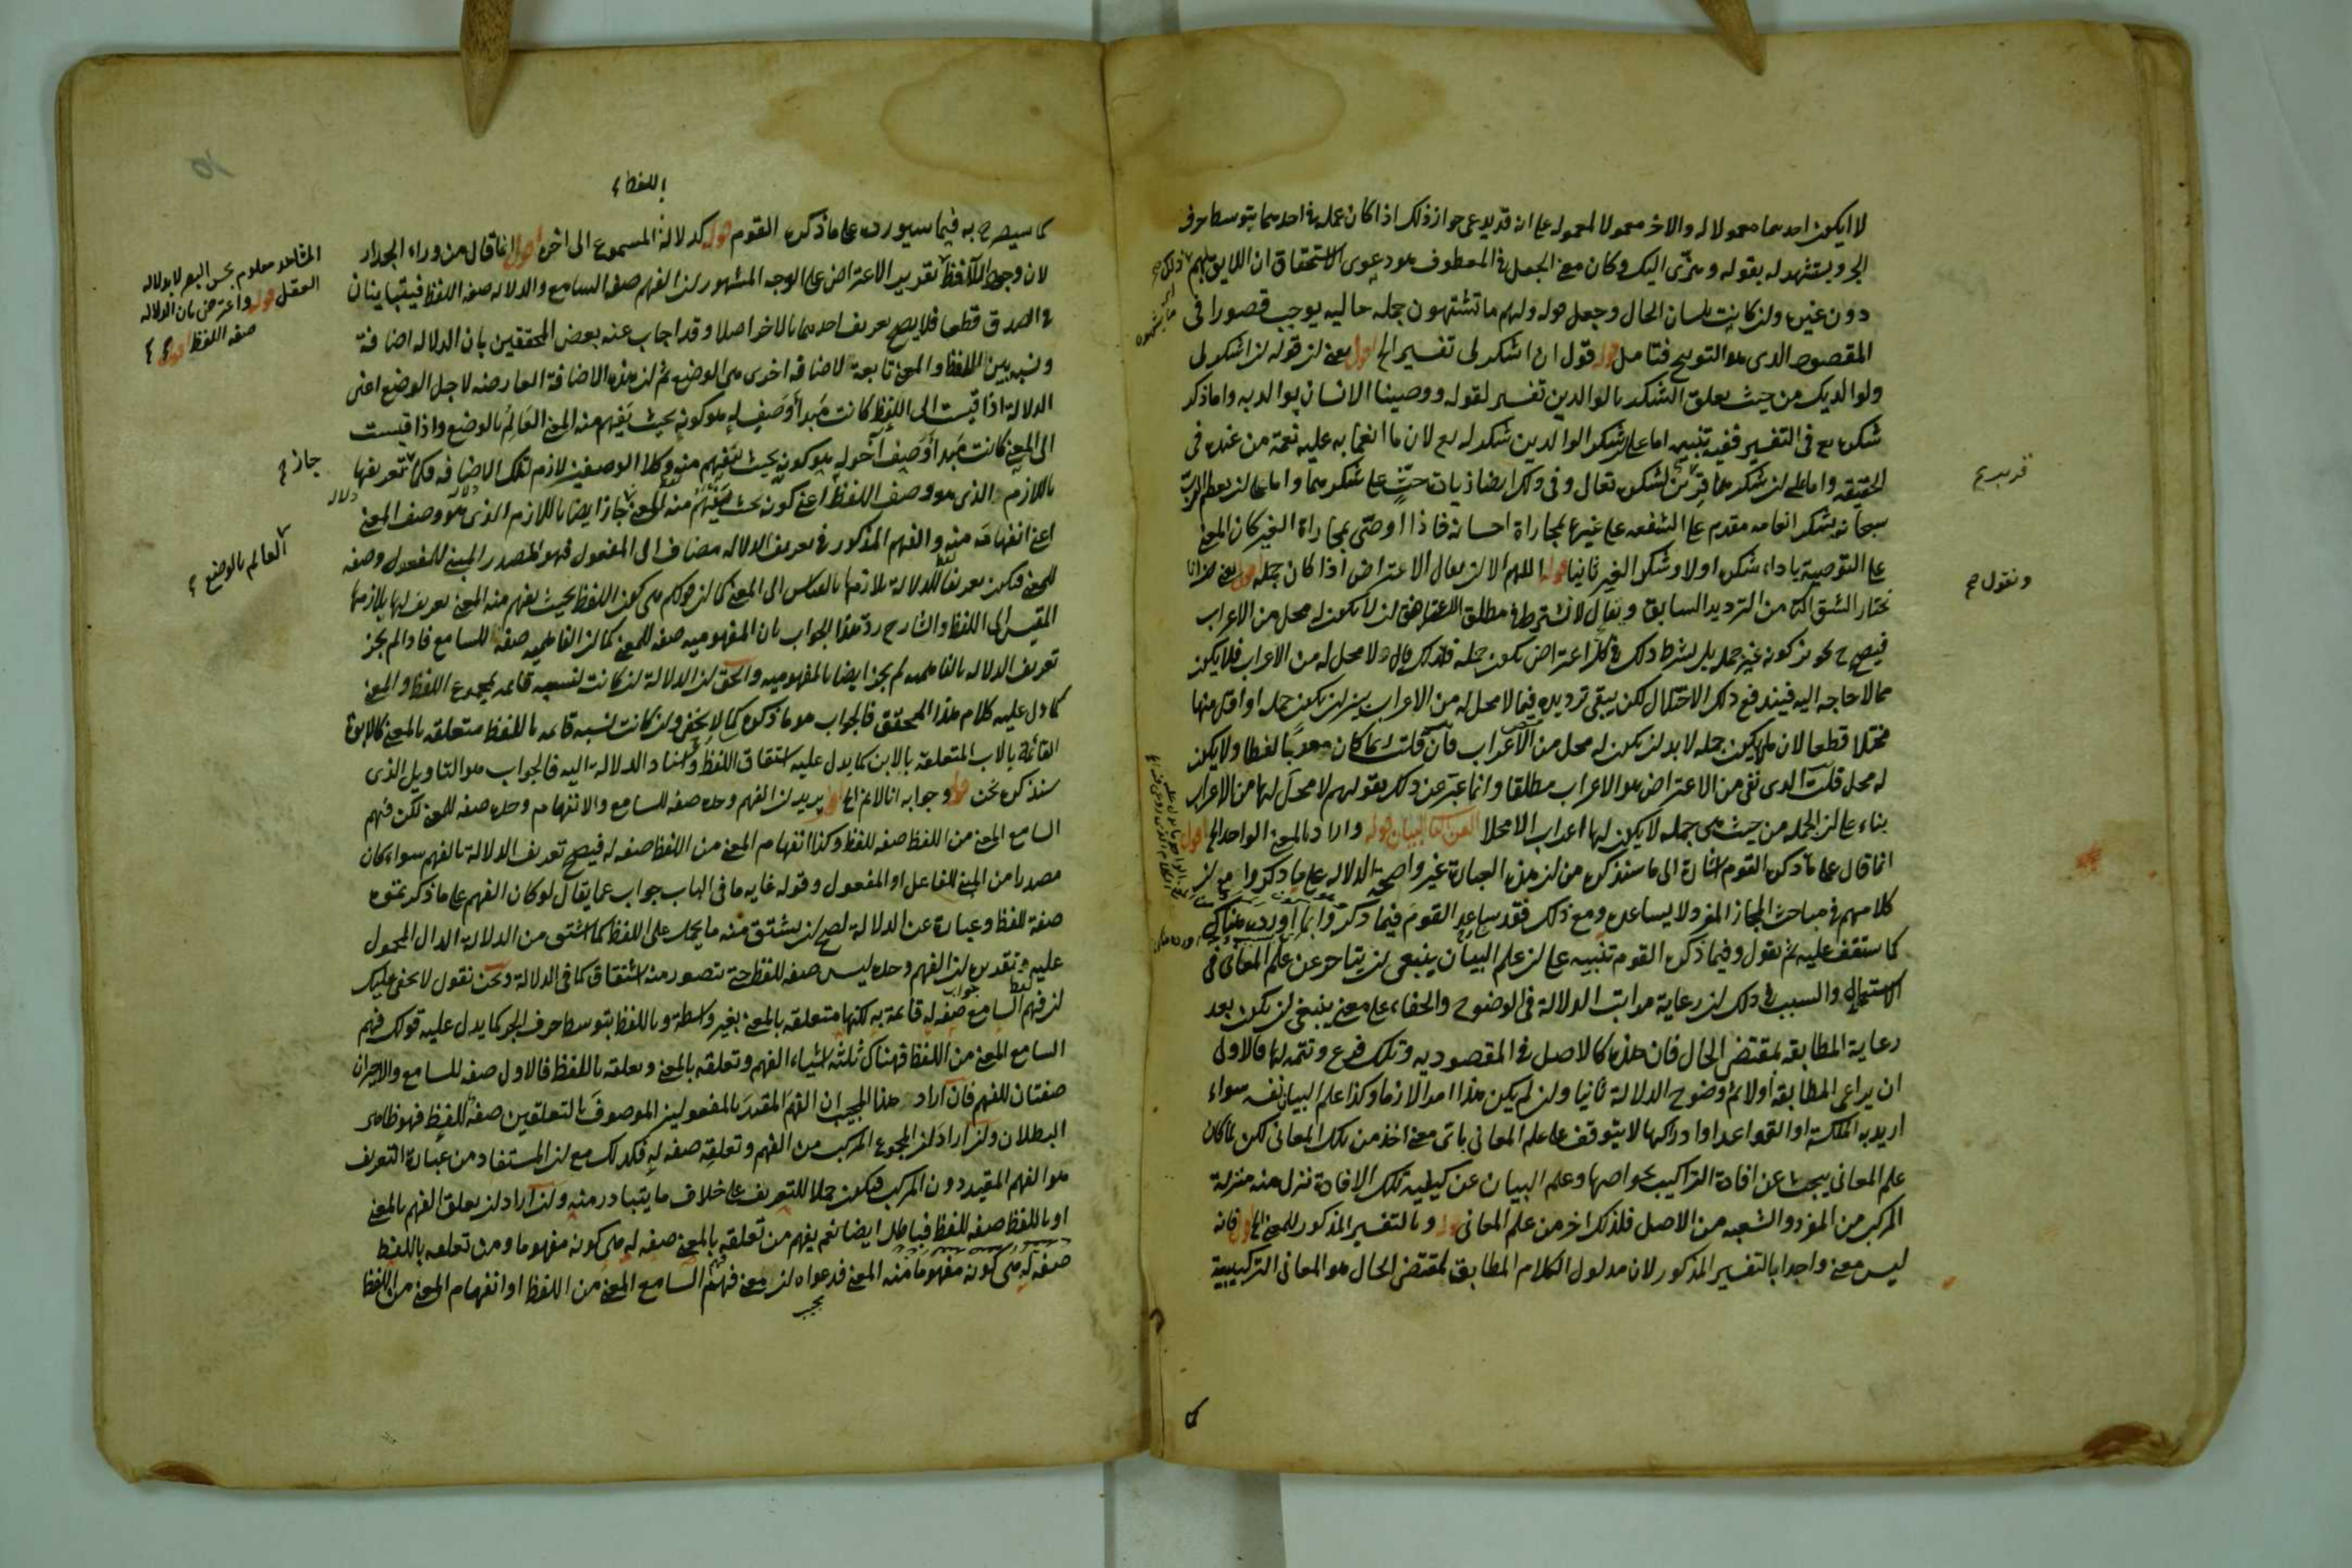 لا ان يكون احدهما معمولا له والاخر معمولا لمعموله على انه قد يدعى جواز ذلك اذا كان عمله في احدهما بتوسط حرف
الجر ويستشهد له بقوله وهزّى اليك وكان معنى الجعل في المعطوف هو دعوى الاستحقاق ان اللايق بهم ذلك
دون غيره ولن كانت بلسان الحال وجعل قوله ولهم ما تشتهون جملة حاليه يوجب قصورا في
المقصود الذى هو التوبيخ فتامل قوله قول ان اشكر لى تفسير الخ اقول يعنى لن قوله لن اشكر لى
ولوالديك من حيث تعلق الشكر بالوالدين تفسير لقوله ووصينا الانسان بوالديه واما ذكر
شكره تع في التفسير ففيه تنبيه اما على لن شكر الوالدين شكر له تع لان ما انعما به عليه نعمة من عنده في
الحقيقه واما على لن شكرهما قرين لشكره تعالى وفى ذلك ايضا زيادة حثّ على شكرهما واما على لن يعظم الرب
سبحانه بشكر انعامه مقدم على الشفعه على غيره لمجازاة احسانه فاذا اوصى بمجازاة الغير كان المعنى
على التوصية باداء شكره اولا وشكر الغير ثانيا قوله اللهم الا لن يقال الاعتراض اذا كان جمله اقول يعنى لن انا
نختار الشق الثا من الترديد السابق ونقول لا نشترط في مطلق الاعتراض لن لا يكون له محل من الاعراب
فيصح تجويز كونه غير جمله بل نشترط ذلك في كل اعتراض يكون جمله فلذلك قال ولا محل له من الاعراب فلا يكون
مما لا حاجه اليه فيندفع ذلك الاحتمال لكن يبقى ترديده فيما لا محل له من الاعراب بين لن يكون جمله او اقل منها
مختلا قطعا لان ما لا يكون جمله لا بد لن يكون له محل من الاعراب فان قلت ربما كان معربا لفظا ولا يكون
له محل قلت الذى نفى من الاعتراض هو الاعراب مطلقا وانما عبّر عن ذلك بقولهم لا محل لها من الاعراب
بناء على لن الجمله من حيث هى جمله لا يكون لها اعراب الا محلا الفن الثانى البيان قوله واراد بالمعنى الواحد الخ اقول
انما قال على ما ذكره القوم اشارة الى ما سنذكره من لن هذه العبارة غير واضحة الدلاله على ما ذكروا مع لن
كلامهم في مباحث المجاز المفرد لا يساعده ومع ذلك فقد ساعد القوم فيما ذكروا بما اورده هناك
كما ستقف عليه ثم نقول وفيما ذكره القوم تنبيه على لن علم البيان ينبغى لن يتاخر عن علم المعانى فى
الاستعمال والسبب في ذلك لن رعاية مراتب الدلالة فى الوضوح والخفاء على معنى ينبغى لن يكون بعد
رعاية المطابقه لمقتضى الحال فان هذه كالاصل في المقصوديه وتلك فرع وتتمه لها فالاولى
ان يراعى المطابقه اولا ثم وضوح الدلالة ثانيا ولن لم يكن هذا امرا لازما وكذا علم البيان نفسه سواء
اريد به الملكة او القواعد او ادراكها لا يتوقف على علم المعانى باى معنى اخذ من تلك المعانى لكن لما كان
علم المعانى يبحث عن افادة التراكيب لخواصها وعلم البيان عن كيفية تلك الافادة نزل منه منزلة
المركب من المفرد والشعبه من الاصل فلذلك اخر من علم المعانى قوله وبالتفسير المذكور للمعنى الخ اقول فانه
ليس معنى واحدا بالتفسير المذكور لان مدلول الكلام المطابق لمقتضى الحال هو المعانى التركيبية
ونقول صح
اللفظ
كما سيصرح به فيما سيورده على ما ذكره القوم قوله كدلالة اللفظ المسموع الى اخره اقول انما قال من وراء الجدار
لان وجود اللافظ تقرير الاعتراض على الوجه المشهور لن الفهم صفه السامع والدلاله صفه اللفظ فيتباينان
في الصدق قطعا فلا يصح تعريف احدهما بالاخر اصلا وقد اجاب عنه بعض المحققين بان الدلاله اضافة
ونسبه بين اللفظ والمعنى تابعة لاضافه اخرى هى الوضع ثم لن هذه الاضافة العارضه لاجل الوضع اعنى
الدلالة اذا قيست الى اللفظ كانت مبدأ وصف له هو كونه بحيث يفهم منه المعنى العالِمُ بالوضع واذا قيست
الى المعنى كانت مبدأ وصف آخر له هو كونه بحيث ينفهم منه وكلا الوصفين لازم لتلك الاضافه فكما تعريفها
باللازم الذى هو وصف اللفظ اعنى كونه بحيث يفهم منه المعنى جاز ايضا باللازم الذى هو وصف المعنى
اعنى انفهامه منه والفهم المذكور في تعريف الدلاله مضاف الى المفعول فهو المصدر المبنى للمفعول وصفه
للمعنى فيكون تعريفا للدلالة بلازمها بالقياس الى المعنى كما لن قولكم هى كون اللفظ بحيث يفهم منه المعنى تعريف لها بلازمها
المقيس الى اللفظ والشارح ردّ هذا الجواب بان المفهوميه صفه للمعنى كما لن الفاهميه صفه للسامع فاذا لم يجز
تعريف الدلاله بالفاهميه لم يجز ايضا بالمفهوميه والحق لن الدلالة لن كانت نسبه قائمه بمجموع اللفظ والمعنى
كما دل عليه كلام هذا المحقق فالجواب هو ما ذكره كما لا يخفى ولن كانت نسبه قائمه باللفظ متعلقه بالمعنى كالابوة
القائمة بالاب المتعلقه بالابن كما يدل عليه اشتقاق اللفظ واسناد الدلالة اليه فالجواب هو التاويل الذى
سنذكره نحن قوله وجوابه انا لانم الخ اقول يريد لن الفهم وحده صفه للسامع والانفهام وحده صفه للمعنى لكن فهم
السامع المعنى من اللفظ صفه للفظ وكذا انفهام المعنى من اللفظ صفه له فيصح تعريف الدلالة بالفهم سواء كان
مصدرا من المبنى للفاعل او المفعول وقوله غايه ما فى الباب جواب عما يقال لو كان الفهم على ما ذكرتموه
صفة للفظ وعبارة عن الدلالة لصح لن يشتق منه ما يحمل على اللفظ كما اشتق من الدلالة الدال المحمول
عليه وتقديره لن الفهم وحده ليس صفه للفظ حتى يتصور منه اشتقاق كما فى الدلالة ونحن نقول لا يخفى عليك
لن فهم السامع صفه له قائمة به لكنها متعلقه بالمعنى بغير واسطة وباللفظ بتوسط حرف الجر كما يدل عليه قولك فهم
السامع المعنى من اللفظ فهناك ثلثة اشياء الفهم وتعلقه بالمعنى وتعلقه باللفظ فالاول صفه للسامع والاخيران
صفتان للفهم فان اراد هذا المجيب ان الفهم المقيد بالمفعولين الموصوف بالتعلقين صفة للفظ فهو ظاهر
البطلان ولن اراد لن المجموع المركب من الفهم وتعلقه صفه له فكذلك مع لن المستفاد من عبارة التعريف
هو الفهم المقيد دون المركب فيكون حملا للتعريف على خلاف ما يتبادر منه ولن اراد لن تعلق الفهم بالمعنى
او باللفظ صفه للفظ فباطل ايضا نعم يفهم من تعلقه بالمعنى صفه له هى كونه مفهوما ومن تعلقه باللفظ
صفه له هى كونه مفهوما منه المعنى فدعواه لن معنى فهم السامع المعنى من اللفظ او انفهام المعنى من اللفظ
المشاهد معلوم بحس البصر لا بدلاله
العقل قوله واعترض بان الدلاله
صفه اللفظ اقول
جاز
العالم بالوضع